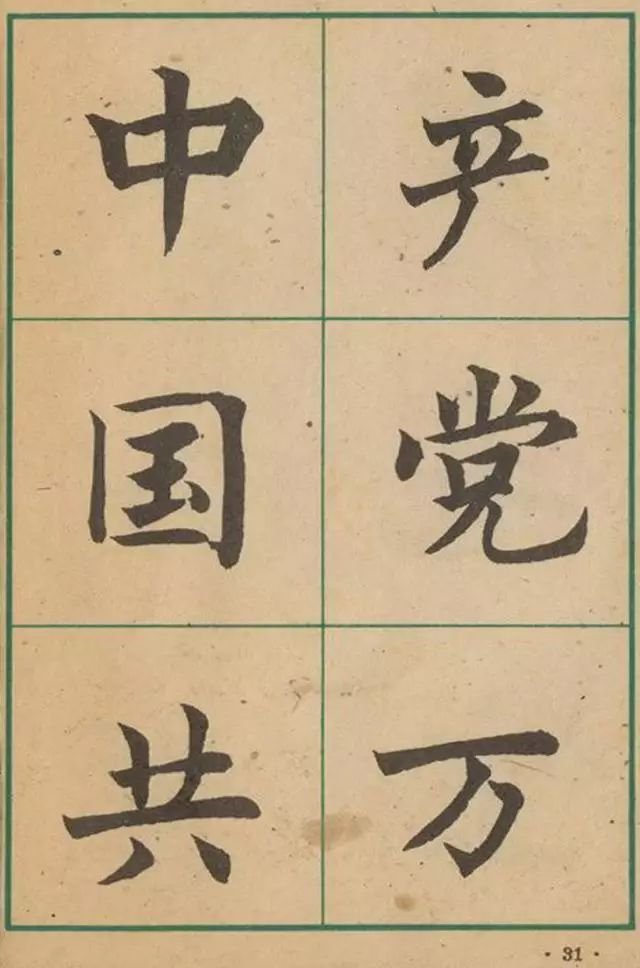 中国共
产党万
· 31 ·